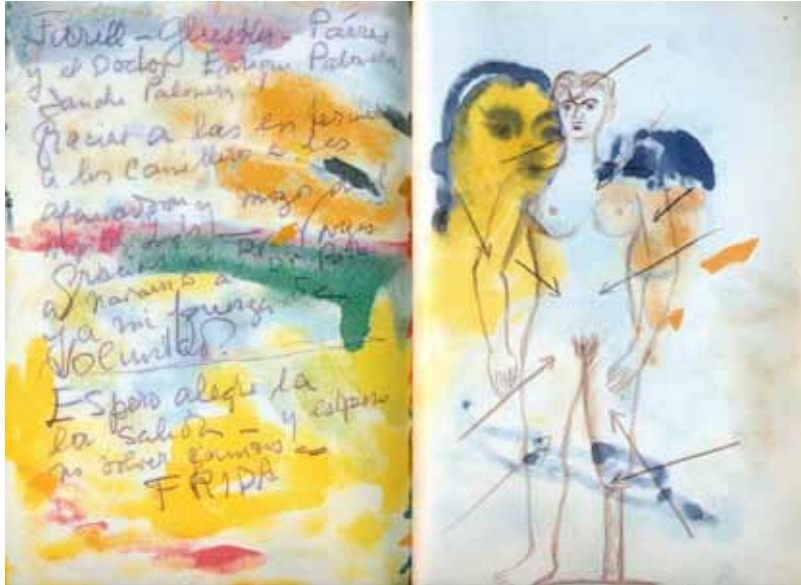 Farill - Glusker - Párres
y el Doctor Enrique Palomera
Sanche Palomera
Gracias a las enfermeras
a los camilleros a las
afanadoras y mozos del
Gracias al Dr
a Navarro a Dr Polo
y a mi fuerza de
Voluntad.
Espero alegre la
la salida - y espero
no volver jamás -
FRIDA